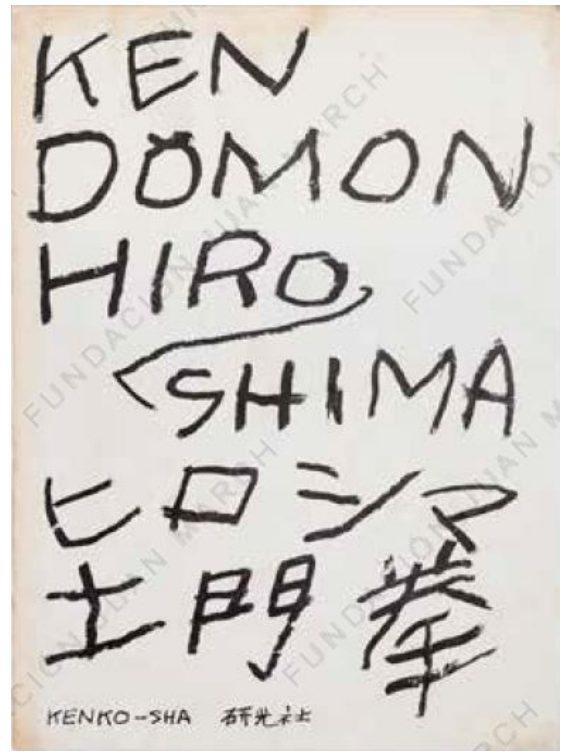 KEN
DOMON
HIRO
SHIMA
ヒロシマ
土門拳
KENKO-SHA 研光社
FUNDACIÓN JUAN MARCH